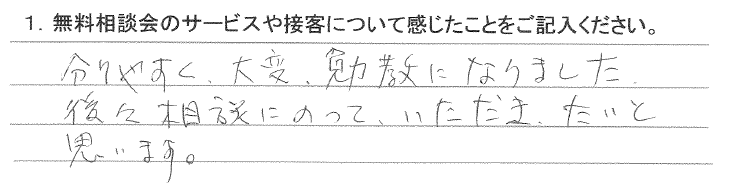 1. 無料相談会のサービスや接客について感じたことをご記入ください。
分りやすく、大変、勉教になりました.
後々相談にのって、いただき、たいと
思います。